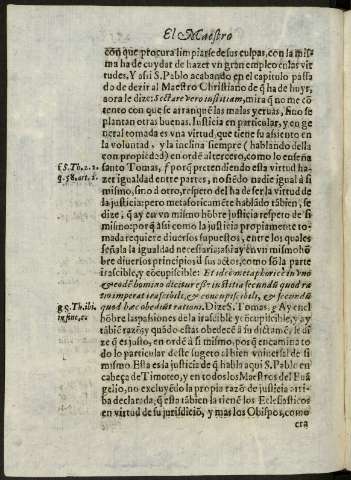 El Maestro
con que procura limpiarse de sus culpas, con la mis-
ma ha de cuydar de hazer vn gran empleo en las vir
tudes, Y assi S. Pablo acabando en el capitulo passa
do de dezir al Maestro Christiano de q̃ ha de huyr,
aora le dize: Sectare vero iustitiam, mira q̃ no me cõ
tento con que se arranquẽ las malas yeruas, sino se
plantan otras buenas. Iusticia en particular, y en ge
neral tomada es vna virtud, que tiene su assiento en
la voluntad, y la inclina siempre (hablando della
con propiedad) en ordẽ al tercero, como lo enseña
f S. Th. 2. 2.
q. 58. art. 2.
santo Tomas, f porq̃ pretendiendo esta virtud ha-
zer igualdad entre partes, no siẽdo nadie igual à si
mismo, sino à otro, respeto del ha de ser la virtud de
la justicia: pero metaforicamẽte hablãdo tãbien, se
dize, q̃ ay en vn mismo hõbre justicia respeto de si
mismo: porq̃ assi como la justicia propiamente to-
mada requiere diuersos supuestos, entre los quales
señala la igualdad necessaria: assi ay en vn mismo hõ
bre diuersos principios d̃ sus actos, como sõ la parte
irascible, y cõcupiscible: Et ideò metaphoricè in vno
& eodẽ homine dicitur esse iustitia secundũ quod ra
tio imperat irascibili, & concupiscibili, & secundũ
g S. Th. ibi.
in fine, ex
quod hæc obediũt rationi. Dize S. Tomas. g Ay en el
hõbre las passiones de la irascible y cõcupiscible, y ay
tãbiẽ razõ; y quãdo estas obedecẽ à su dictamẽ, se di
ze q̃ es justo, en ordẽ à si mismo, porq̃ encamina to
do lo particular deste sugeto al bien vniuersal de si
mismo. Esta es la justicia de q̃ habla aqui S. Pablo en
cabeça de Timoteo, y en todos los Maestros del Euã
gelio, no excluyẽdo la propia razõ de justicia arri-
ba declarada, q̃ esta tãbien la tienẽ los Eclesiasticos
en virtud de su jurisdiciõ, y mas los Obispos, como
era